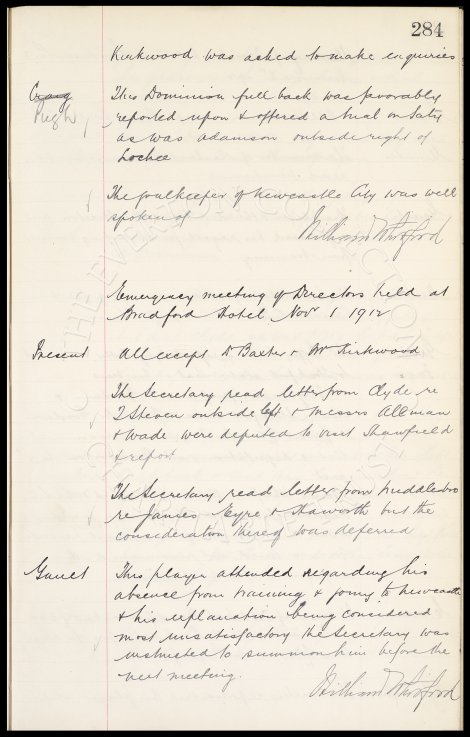 284
Kirkwood was asked to make enquiries
Craig This Dominion full back was favorably
Hugh reported upon & offered a trial on Saty
as was Adamson outside right of
Lochee
The Goalkeeper of Newcastle City was well
spoken of
William Whitford
Emergency meeting of Directors held at
Bradford Hotel Novr 1 1912
Present All except Dr Baxter & Mr Kirkwood
The Secretary read letter from Clyde re
T Steven outside left & Messrs Allman
& Wade were deputed to visit Shawfield
& report
The Secretary read letter from Middlesbro
re James Eyre & Haworth but the
consideration thereof was deferred
Gault This player attended regarding his
absence from training & going to Newcastle
& his explanation being considered
most unsatisfactory the Secretary was
instructed to summon him before the
next meeting.
William Whitford
THE EVERTON COLLECTION